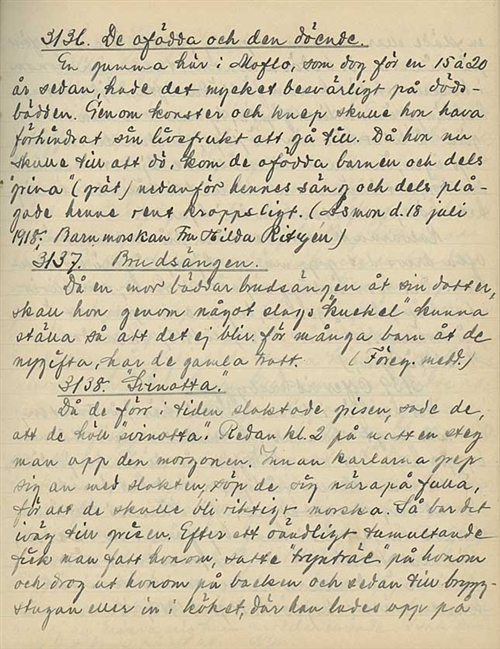 3136. De ofödda och den döende.
En gumma här i Moflo, som dog för en 15 à 20
år sedan, hade det mycket besvärligt på döds-
bädden. Genom konster och knep skulle hon hava
förhindrat sin livsfrukt att gå till. Då hon nu
skulle till att dö, kom de ofödda barnen och dels
"grina" (gråt) nedanför hennes säng och dels plå-
gade henne rent kroppsligt. (Åsmon d. 18 juli
1918. Barnmorskan Fru Hilda )
3137. Brudsängen.
Då en mor bäddar brudsängen åt sin dotter,
skall hon genom något slags "kuckel" kunna
ställa så att det ej blir för många barn åt de
nygifta, har de gamla trott. (Föreg. medd.)
3138. "Svinotta".
Då de förr i tiden slaktade grisen, sade de,
att de höll "svinotta". Redan kl. 2 på natten steg
man upp den morgonen. Innan karlarna grep
sig an med slakten, söp de sig närapå fulla,
för att de skulle bli riktigt morska. Så bar det
iväg till grisen. Efter ett oändligt tumultande
fick man fatt honom, satte "trynträe" på honom
och drog ut honom på backen och sedan till brygg-
stugan eller in i köket, där han lades upp på